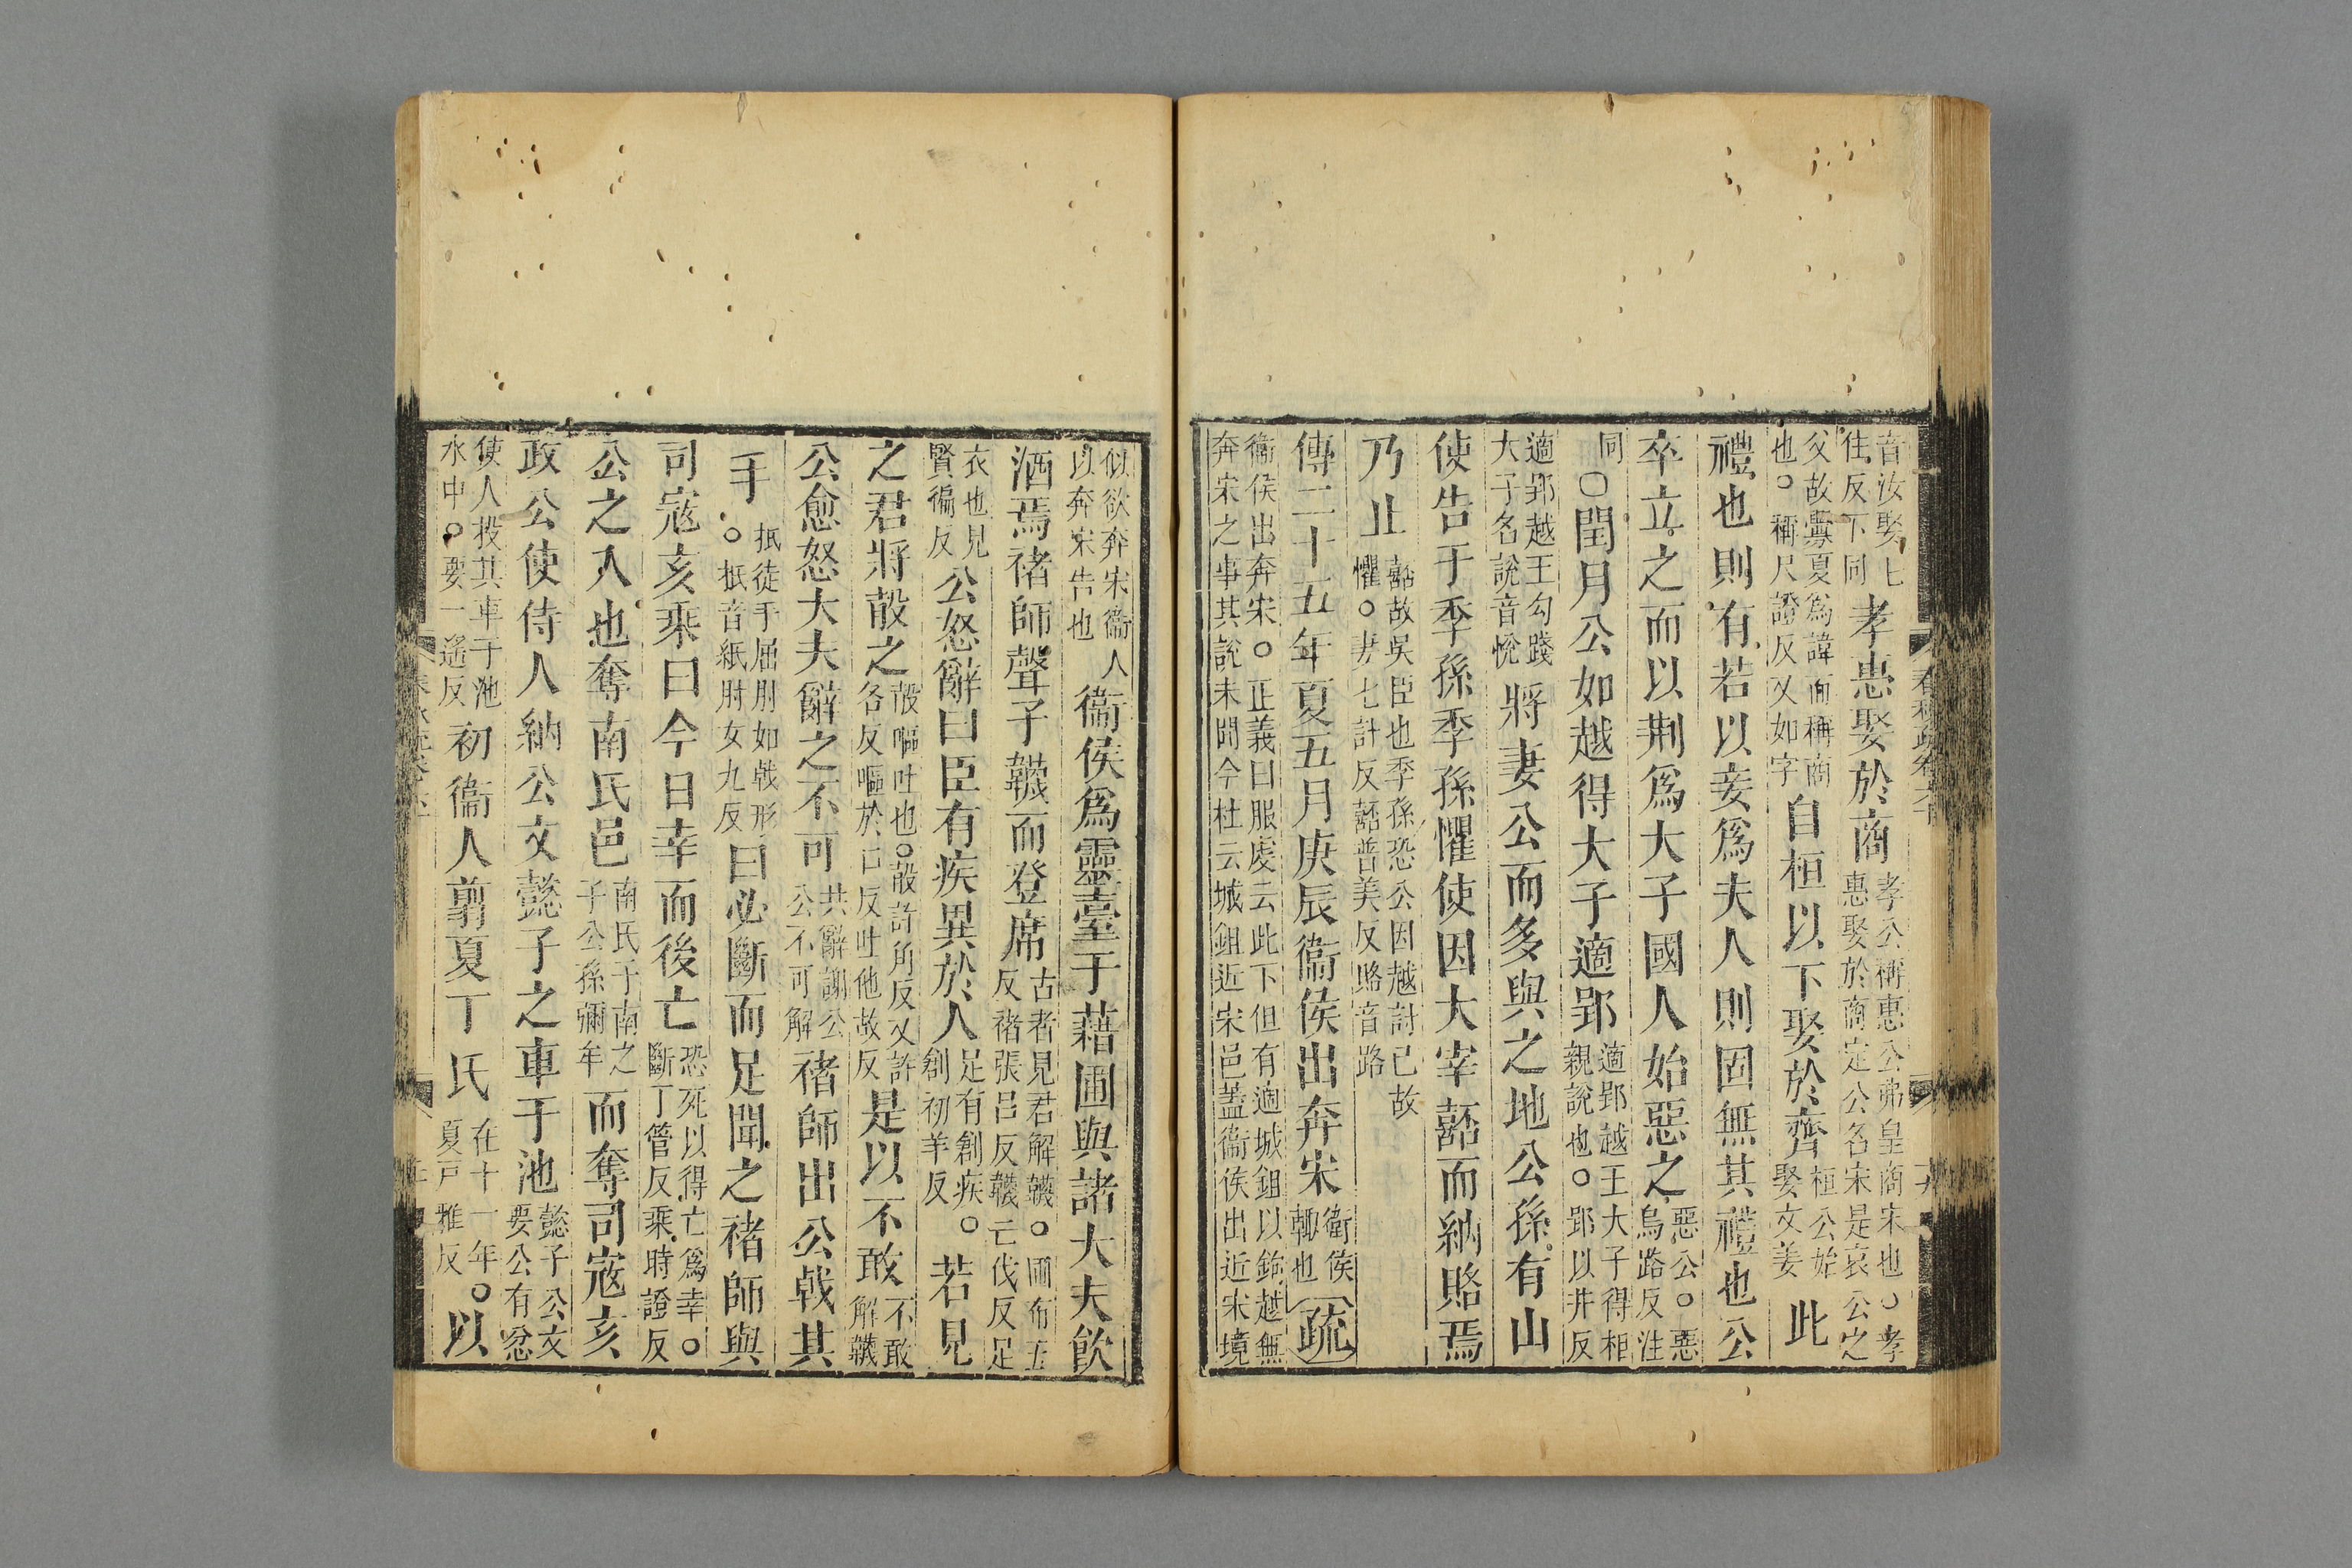 音汝娶七住反下同孝惠娶於商孝公稱惠公弗皇商宋也○孝惠娶於商定公名宋是哀公之
父故釁夏爲諱而稱商也○稱尺證反又如字自桓以下娶於齊桓公始娶文姜此
禮也則有若以妾爲夫人則固無其禮也公
卒立之而以荆爲大子國人始惡之惡公○惡烏路反注
同○閏月公如越得大子適郢適郢越王大子得相親說也○郢以井反
適郢越王勾踐大子名說音悅將妻公而多與之地公孫有山
使告于季孫季孫懼使因大宰嚭而納賂焉
乃止嚭故吳臣也季孫恐公因越討已故懼○妻七計反嚭普美反賂音路
傳二十五年夏五月庚辰衞侯出奔宋衞侯輒也疏
衞侯出奔宋○正義曰服虔云此下但有適城鉏以鉤越無奔宋之事其說未聞今杜云城鉏近宋邑蓋衞侯出近宋境
似欲奔宋衞人以奔宋告也衞侯爲靈臺于藉圃與諸大夫飮
酒焉褚師聲子韤而登席古者見君解韤○圃布五反褚張呂反韤亡伐反足
衣也見賢徧反公怒辭曰臣有疾異於人足有創疾○創初羊反若見
之君將㱿之㱿嘔吐也○㱿許角反又許各反嘔於口反吐他故反是以不敢不敢解韤
公愈怒大夫辭之不可共辭謝公公不可解褚師出公戟其
手抵徒手屈肘如戟形○抵音紙肘女九反曰必斷而足聞之褚師與
司寇亥乘曰今日幸而後亡恐死以得亡爲幸○斷丁管反乘時證反
公之入也奪南氏邑南氏子南之子公孫彌牟而奪司寇亥
政公使侍人納公文懿子之車于池懿子公文要公有忿
使人投其車于池水中○要一遙反初衞人翦夏丁氏在十一年○夏戸雅反以
春秋疏卷六十